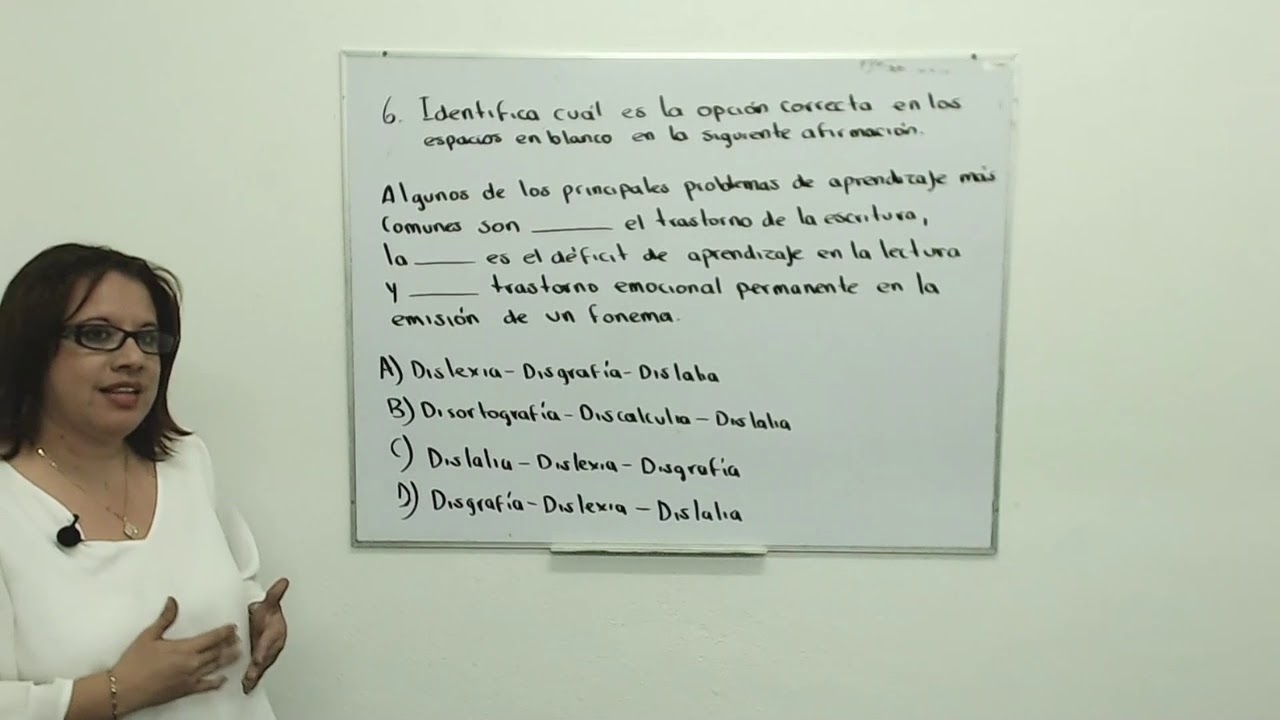 6. Identifica cuál es la opción correcta en los
espacios en blanco en la siguiente afirmación.
Algunos de los principales problemas de aprendizaje más
comunes son ______ el trastorno de la escritura,
la _____ es el déficit de aprendizaje en la lectura
y _____ trastorno emocional permanente en la
emisión de un fonema.
A) Dislexia - Disgrafía - Dislaba
B) Disortografía - Discalculia - Dislalia
C) Dislalia - Dislexia - Disgrafía
D) Disgrafía - Dislexia - Dislalia